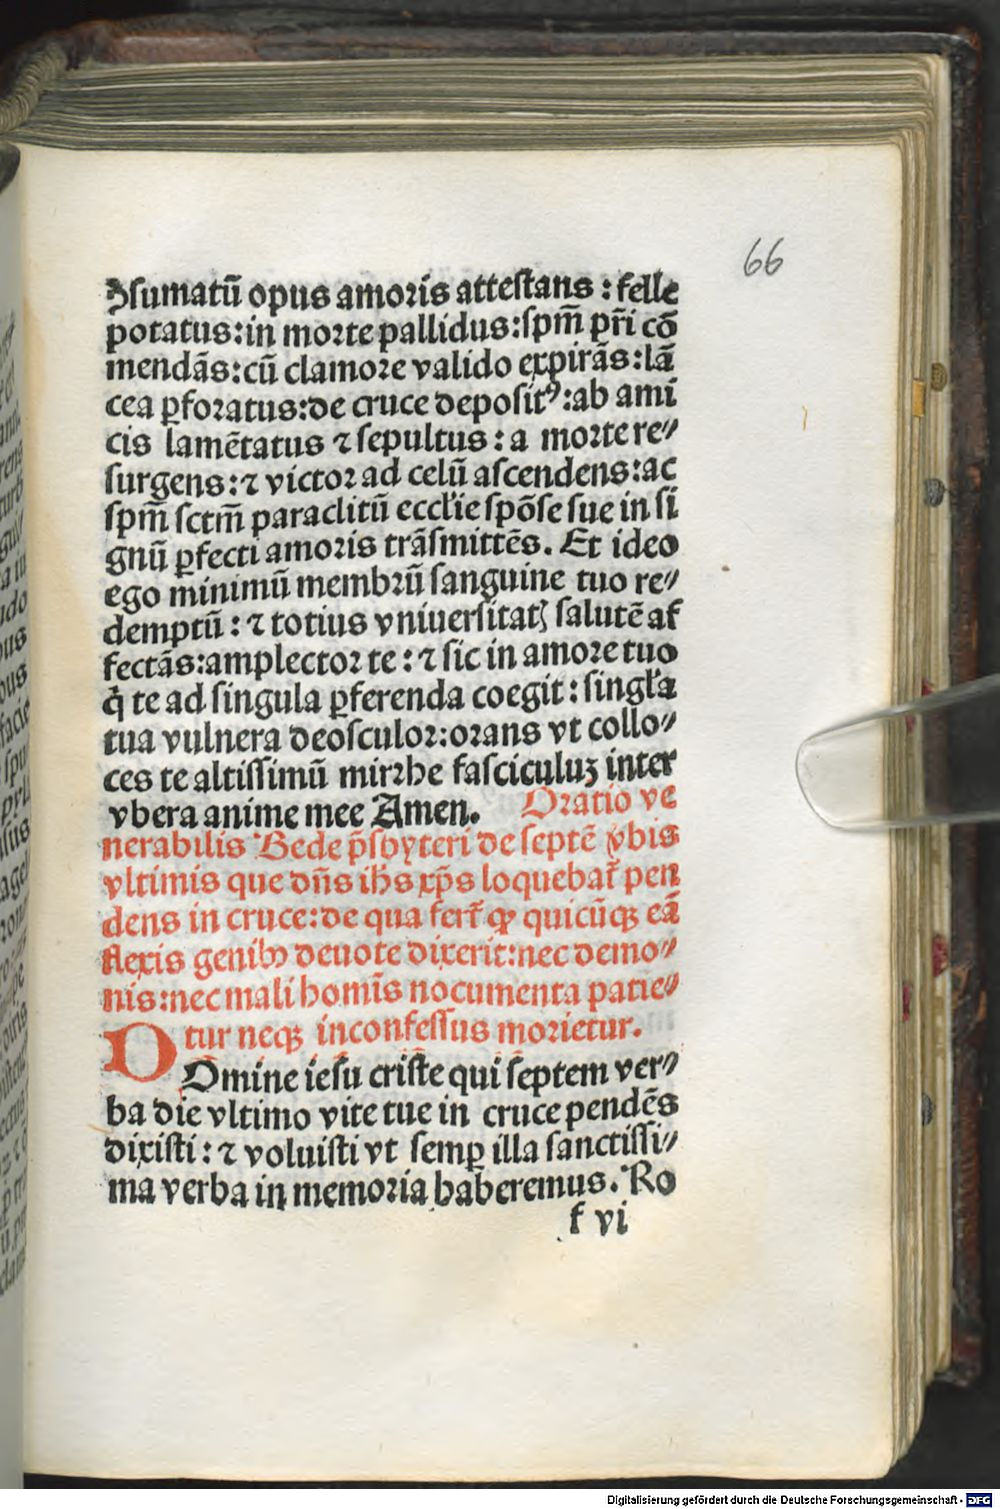 66
ꝯsumatū opus amoris attestans : felle
potatus: in morte pallidus: spm̄ pr̄i cō
mendās: cū clamore valido expirās: lā
cea ꝑforatus: de cruce deposit⁹: ab ami
cis lamētatus ⁊ sepultus : a morte re⸗
surgens: ⁊ victor ad celū ascendens: ac
spm̄ sctm̄ paraclitū eccl'ie spōse sue in si
gnū ꝑfecti amoris trāsmittēs. Et ideo
ego minimū membrū sanguine tuo re⸗
demptū : ⁊ totius vniuersitatꝭ salutē af
fectās: amplector te : ⁊ sic in amore tuo
q̄ te ad singula ꝑferenda coegit : singl'a
tua vulnera deosculor: orans vt collo⸗
ces te altissimū mirrhe fasciculuꝫ inter
vbera anime mee Amen. Oratio ve
nerabilis Bede p̄sbyteri de septē ṽbis
vltimis que dn̄s ih̄s xp̄s loquebat᷑ pen
dens in cruce: de qua fert᷑ ꝙ quicūqꝫ eā
flexis genibꝰ deuote dixerit: nec demo⸗
nis: nec mali homīs nocumenta patie⸗
tur neqꝫ inconfessus morietur.
Domine iesu criste qui septem ver⸗
ba die vltimo vite tue in cruce pendēs
dixisti : ⁊ voluisti vt semꝑ illa sanctissi⸗
ma verba in memoria haberemus. Ro
f vi
Digitalisierung gefördert durch die Deutsche Forschungsgemeinschaft - DFG